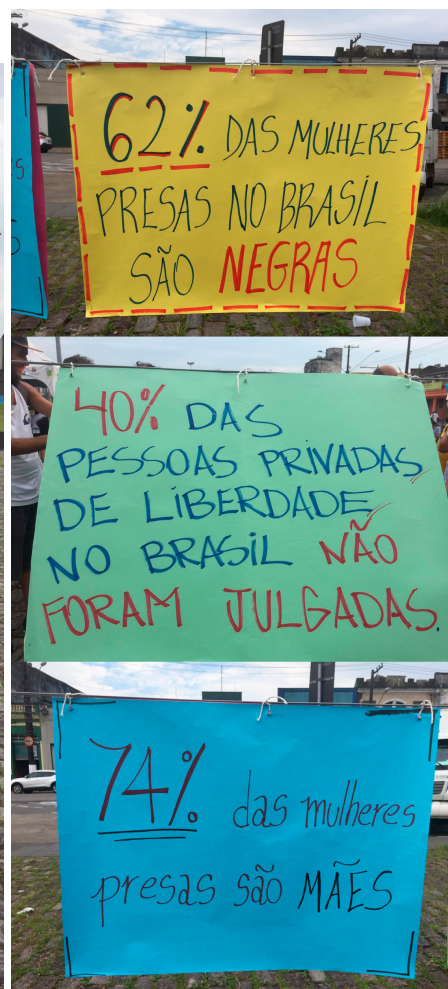 62% DAS MULHERES
PRESAS NO BRASIL
SÃO NEGRAS
40% DAS
PESSOAS PRIVADAS
DE LIBERDADE
NO BRASIL NÃO
FORAM JULGADAS.
74% das mulheres
presas são MÃES